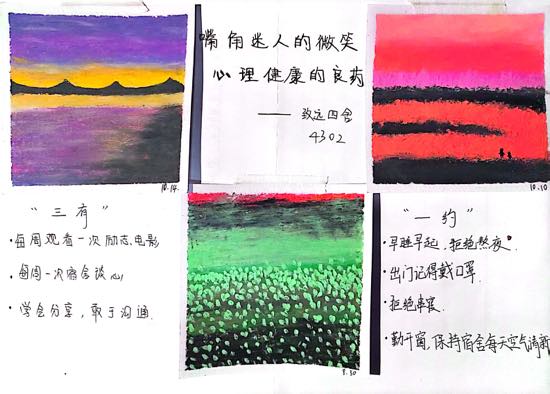 嘴角迷人的微笑
心理健康的良药
——致远四舍
4302
10.14.
10.10
"三有"
·每周观看一次励志电影
·每周一次宿舍谈心
·学会分享，敢于沟通.
9.30
"一约"
·早睡早起，拒绝熬夜
·出门记得戴口罩.
·拒绝串寝.
·勤开窗，保持宿舍每天空气清新